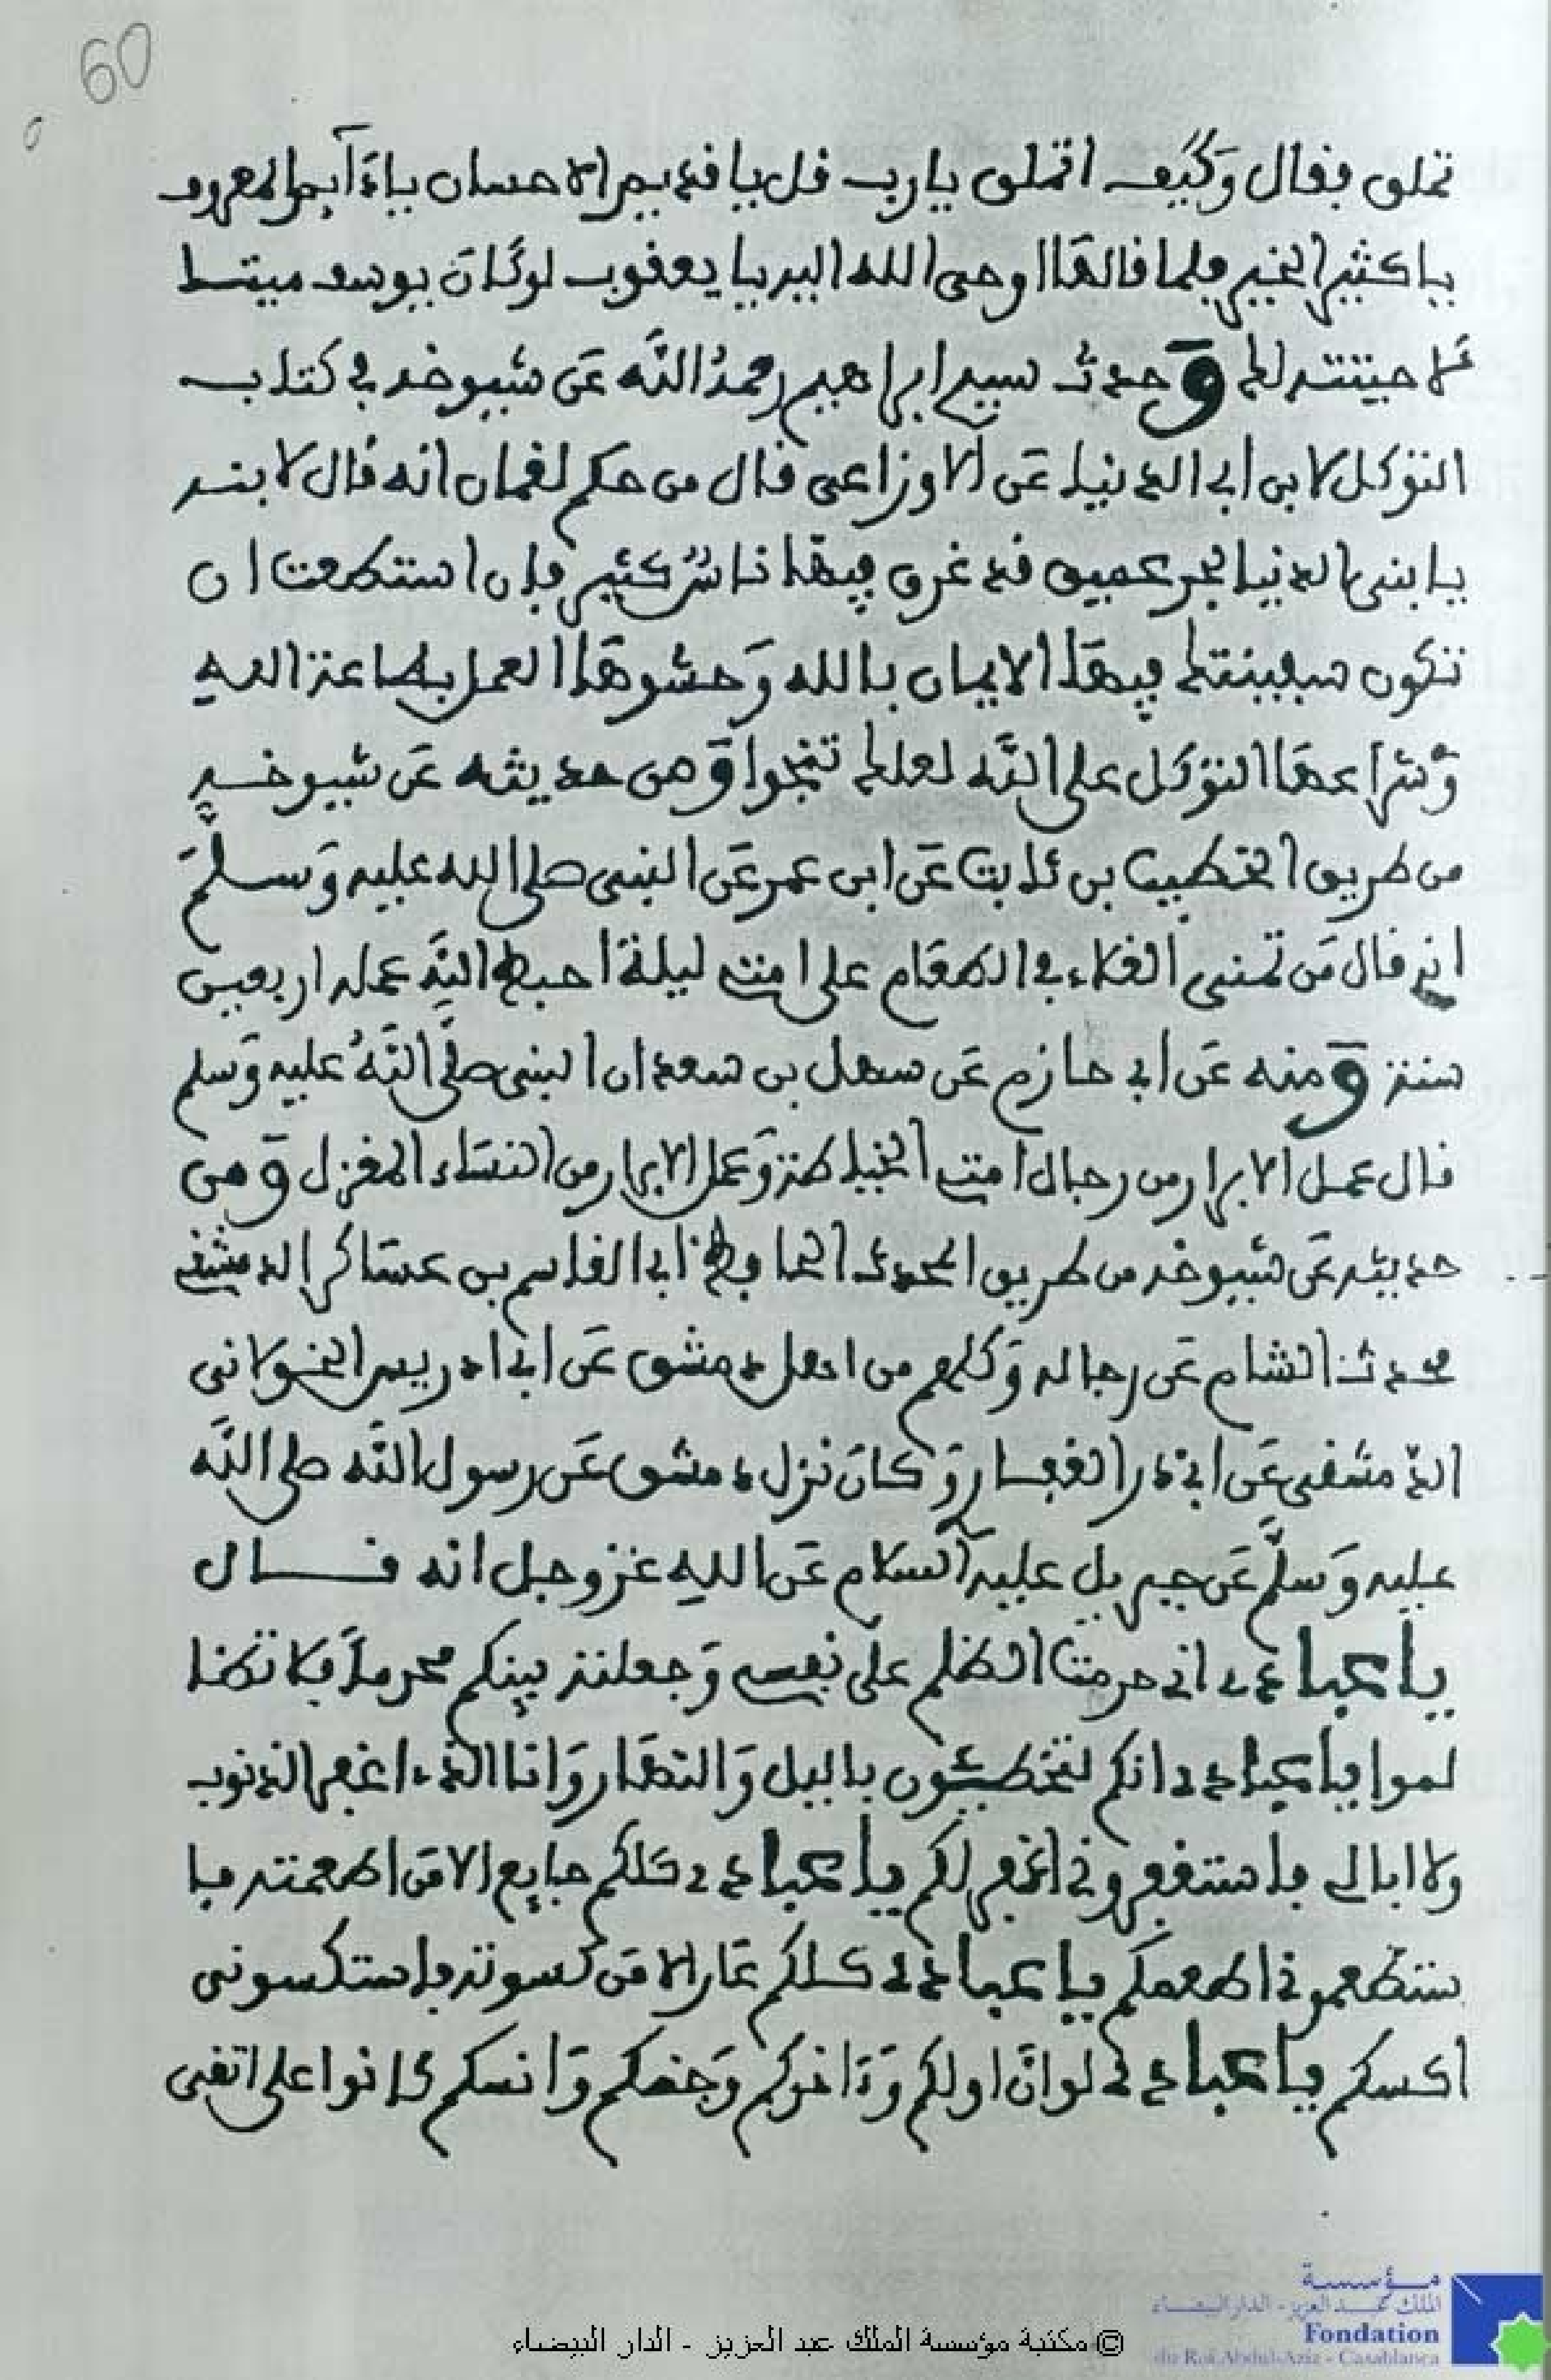 60
تملق فقال وَكَيف اتملق يارب قل يا قديم الاحسان يا دَآيم المعروف
يا كثير الخير فلما قالهَا اوحى الله اليه يا يعقوب لو كَانَ يوسف ميتـا
لاحييته لك وَحدث سيدي ابراهيم رحمهُ اللَّه عَن شيوخه في كتاب
التوكل لابن ابي الدنيا عَن الاوزاعي قال من حكم لقمان انه قال لابنـه
يا بني الدنيا بحر عميق قد غرق فيهَا ناسٌ كثير فإن استطعت ان
تكون سفينتك فيهَا الايمان بالله وَحشوهَا العمل بطاعة الله
وَشراعهَا التوكل على اللَّه لعلك تنجوا وَمن حديثه عَن شيوخـه
من طريق الخطيب بن ثابت عَن ابن عمر عَن النبي صلى الله عليه وَسـلمَ
انه قال مَن تمنى الغلاء في الطعَام على امتي ليلة احبط اللَّه عمله اربعين
سنة وَمنه عَن ابي حازم عَن سهل بن سعد ان النبي صلَّى اللَّهُ عليه وَسلم
قال عمـل الابرار من رجال امتي الخياطة وَعمل الابرار من النسَاء المغزل وَمن
حديثه عَن شيوخه من طريق المحدث الحافظ ابي القاسم بن عسَاكر الدمشقي
محدث الشام عَن رجاله وَكلهم من اهل دمشق عَن ابي ادريس الخولاني
الدمشقي عَن ابي ذر الغفـاري وَكانَ نزل دمشق عَن رسول اللَّه صلى اللَّه
عليه وَسلَّم عَن جبريل عليه آلسلام عَن الله عز وجل انه قــال
يا عبادي اني حرمت الظلم على نفسي وَجعلته بينكم محرماً فلا تظا
لموا يا عبادي انكم تخطئون بالليل وَالنهَار وَانا الذي اغفر الذنوب
ولا ابالي فاستغفروني اغفر لكم يا عبادي كلكم جايع الا مَن اطعمته فا
ستطعموني اطعمكم يا عبادي كـلكم عَار الا مَن كسوته فاستكسوني
اكسكم يا عبادي لو انَّ اولكم وَءَاخركم وَجنكم وَانسكم كانوا على اتقى
مؤسسة
الملك عبد العزيز - الدار البيضاء
Fondation
du Roi Abdul-Aziz - Casablanca
© مكتبة مؤسسة الملك عبد العزيز - الدار البيضاء